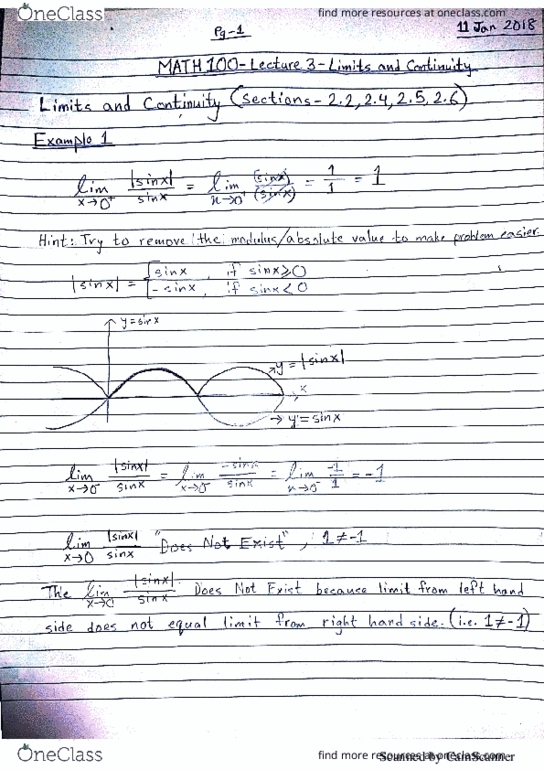 OneClass
find more resources at oneclass.com
Pg-1
11 Jan 2018
MATH 100-Lecture 3-Limits and Continuity
Limits and Continuity (Sections-2.2, 2.4, 2.5, 2.6)
Example 1
lim x→0⁺ |sinx|/sinx = lim x→0⁺ (sinx)/(sinx) = 1/1 = 1
Hint: Try to remove the modulus/absolute value to make problem easier
|sinx| = { sinx, if sinx≥0
{ -sinx, if sinx<0
y=sinx
y=|sinx|
x
y=sinx
lim x→0⁻ |sinx|/sinx = lim x→0⁻ -sinx/sinx = lim x→0⁻ -1/1 = -1
lim x→0 |sinx|/sinx "Does Not Exist", 1≠-1
The lim x→0 |sinx|/sinx Does Not Exist because limit from left hand
side does not equal limit from right hand side. (i.e. 1≠-1)
OneClass
find more resources at oneclass.com
Scanned by CamScanner